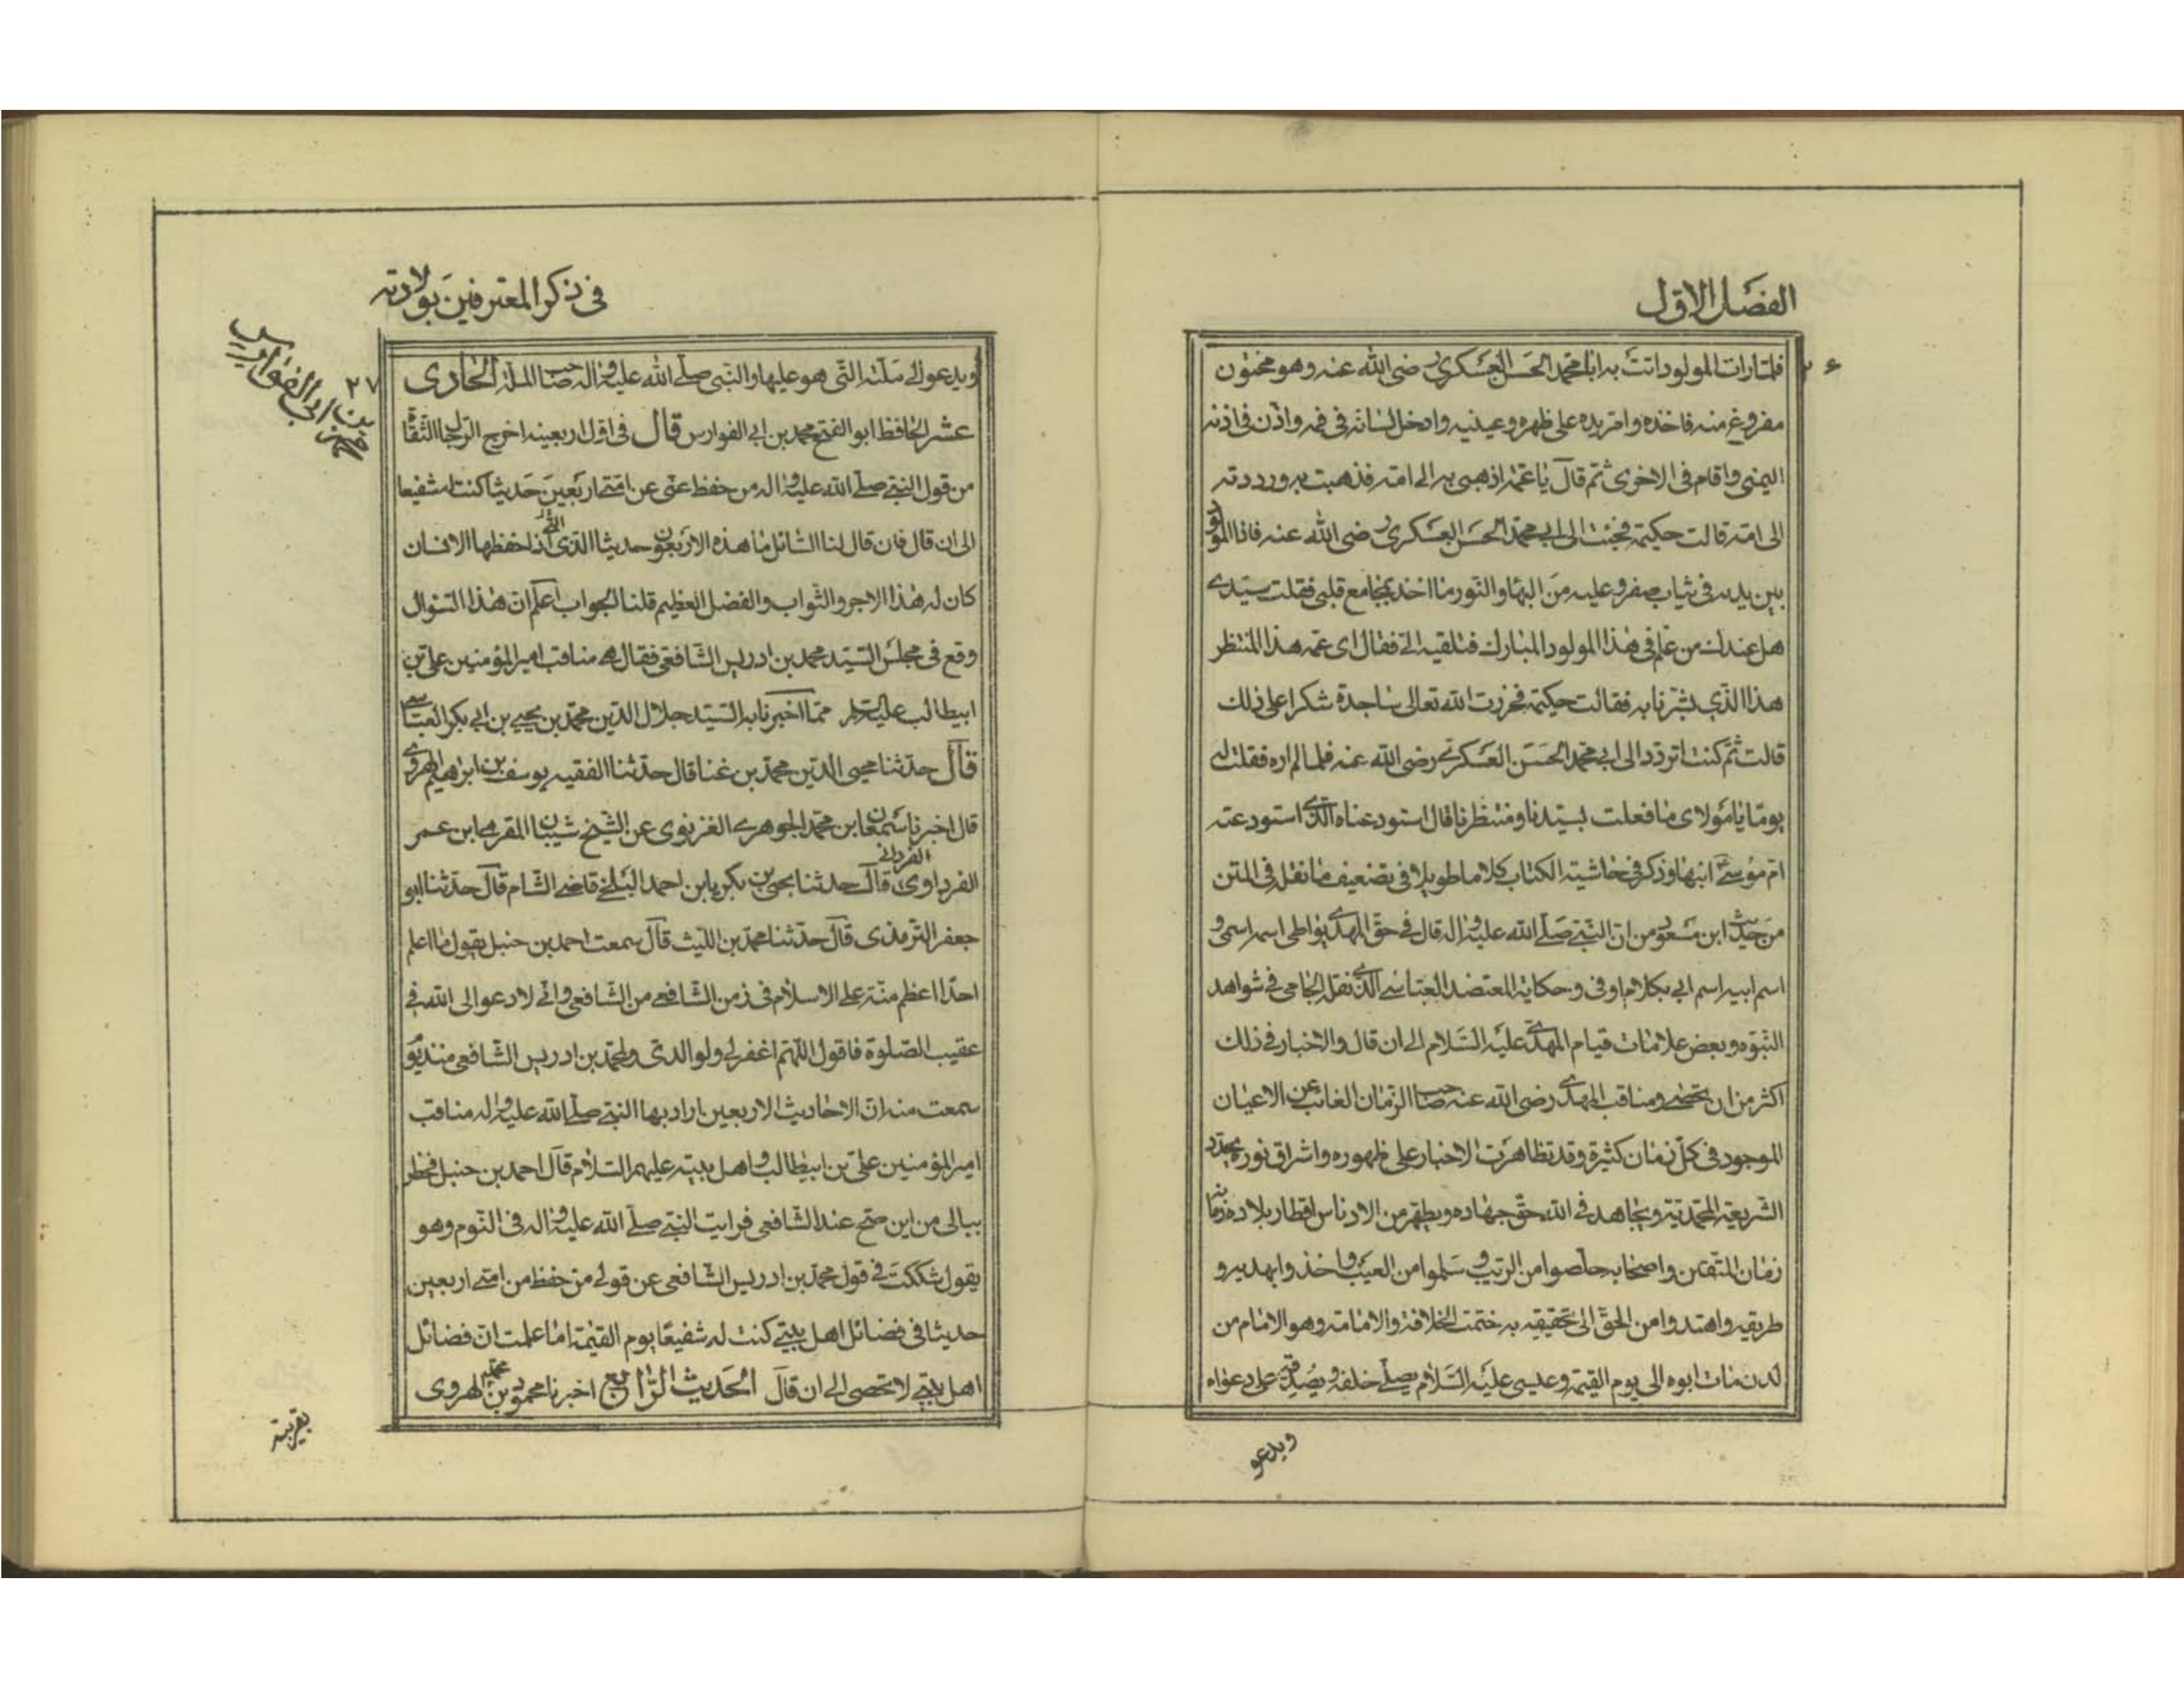 الفصل الاول
٢۶
فلما رات المولود اتت به ابا محمد الحسن العسكري رضى الله عنه وهو مختون
مفروغ منه فاخذه وامر يده على ظهره وعينيه وادخل لسانه فى فمه واذن فى اذنه
اليمنى واقام فى الاخرى ثم قال يا عمة اذهبى به الى امه فذهبت به ورددته
الى امه قالت حكيمة فجئت الى ابى محمد الحسن العسكرى رضى الله عنه فاذا المولود
بين يديه فى ثياب صفر وعليه من البهاء والنور ما اخذ بمجامع قلبى فقلت سيدى
هل عندك من علم فى هذا المولود المبارك فتلقيه الى فقال اى عمه هذا المنتظر
هذا الذى بشرنا به فقالت حكيمة فخررت الله تعالى ساجدة شكرا على ذلك
قالت ثم كنت اتردد الى ابى محمد الحسن العسكرى رضى الله عنه فلما لم اره فقلت له
يوما يا مولاى ما فعلت بسيدنا ومنتظرنا قال استودعناه الذى استودعته
ام موسى ابنها وذكر فى حاشية الكتاب كلاما طويلا فى تضعيف ما نقل فى المتن
من حديث ابن مسعود من ان النبى صلى الله عليه واله قال فى حق المهدى يواطى اسمه اسمى و
اسم ابيه اسم ابى بكلام اوفى وحكاية المعتضد العباسى الذى نقله الجامى فى شواهد
النبوه وبعض علامات قيام المهدى عليه السلام الى ان قال والاخبار فى ذلك
اكثر من ان تحصى ومناقب المهدى رضى الله عنه صاحب الزمان الغائب عن الاعيان
الموجود فى كل زمان كثيرة وقد تظاهرت الاخبار على ظهوره واشراق نوره يجدد
الشريعة المحمدية ويجاهد فى الله حق جهاده ويطهر من الادناس اقطار بلاده زمانه
زمان المتقين واصحابه خلصوا من الريب وسلموا من العيب واخذوا بهديه و
طريقه واهتدوا من الحق الى تحقيقه به ختمت الخلافة والامامة وهو الامام من
لدن مات ابوه الى يوم القيمة وعيسى عليه السلام يصلى خلفه ويصدقه على دعواه
ويدعو
فى ذكر المعترفين بولادته
٢٧
محمد بن ابى الفوارس
ويدعو الى ملته التى هو عليها والنبى صلى الله عليه واله صاحب الملة الحادى
عشر الحافظ ابو الفتح محمد بن ابى الفوارس قال فى اول اربعينه اخرج الرجال الثقاة
من قول النبى صلى الله عليه واله من حفظ عنى من امتى اربعين حديثا كنت له شفيعا
الى ان قال فان قال لنا السائل ما هذه الاربعون حديثا الذى اذا حفظها الانسان
كان له هذا الاجر والثواب والفضل العظيم قلنا الجواب اعلم ان هذا السئوال
وقع فى مجلس السيد محمد بن ادريس الشافعى فقال هى مناقب امير المؤمنين على بن
ابيطالب عليه السلام مما اخبرنا به السيد جلال الدين محمد بن يحيى بن ابى بكر العباسى
قال حدثنا محيى الدين محمد بن غنا قال حدثنا الفقيه يوسف بن ابراهيم الهروى
قال اخبرنا سمعان ابن محمد الجوهرى الغزنوى عن الشيخ شيبان المقرى ابن عمر
الفرداوى قال حدثنا يحيى بن بكر يا بن احمد البلخى قاضى الشام قال حدثنا ابو
جعفر الترمذى قال حدثنا محمد بن الليث قال سمعت احمد بن حنبل يقول ما اعلم
احدا اعظم منة على الاسلام فى زمن الشافعى من الشافعى وانى لادعو الى الله فى
عقيب الصلوة فاقول اللهم اغفر لى ولوالدى ولمحمد بن ادريس الشافعى منذ يوم
سمعت منه ان الاحاديث الاربعين اراد بها النبى صلى الله عليه واله مناقب
امير المؤمنين على بن ابيطالب واهل بيته عليهم السلام قال احمد بن حنبل فخطر
ببالى من اين صح عند الشافعى فرايت النبى صلى الله عليه واله فى النوم وهو
يقول شككت فى قول محمد بن ادريس الشافعى عن قولى من حفظ من امتى اربعين
حديثا فى فضائل اهل بيتى كنت له شفيعا يوم القيمة اما علمت ان فضائل
اهل بيتى لا تحصى الى ان قال الحديث الرابع اخبرنا محمود بن محمد الهروى
بقريته